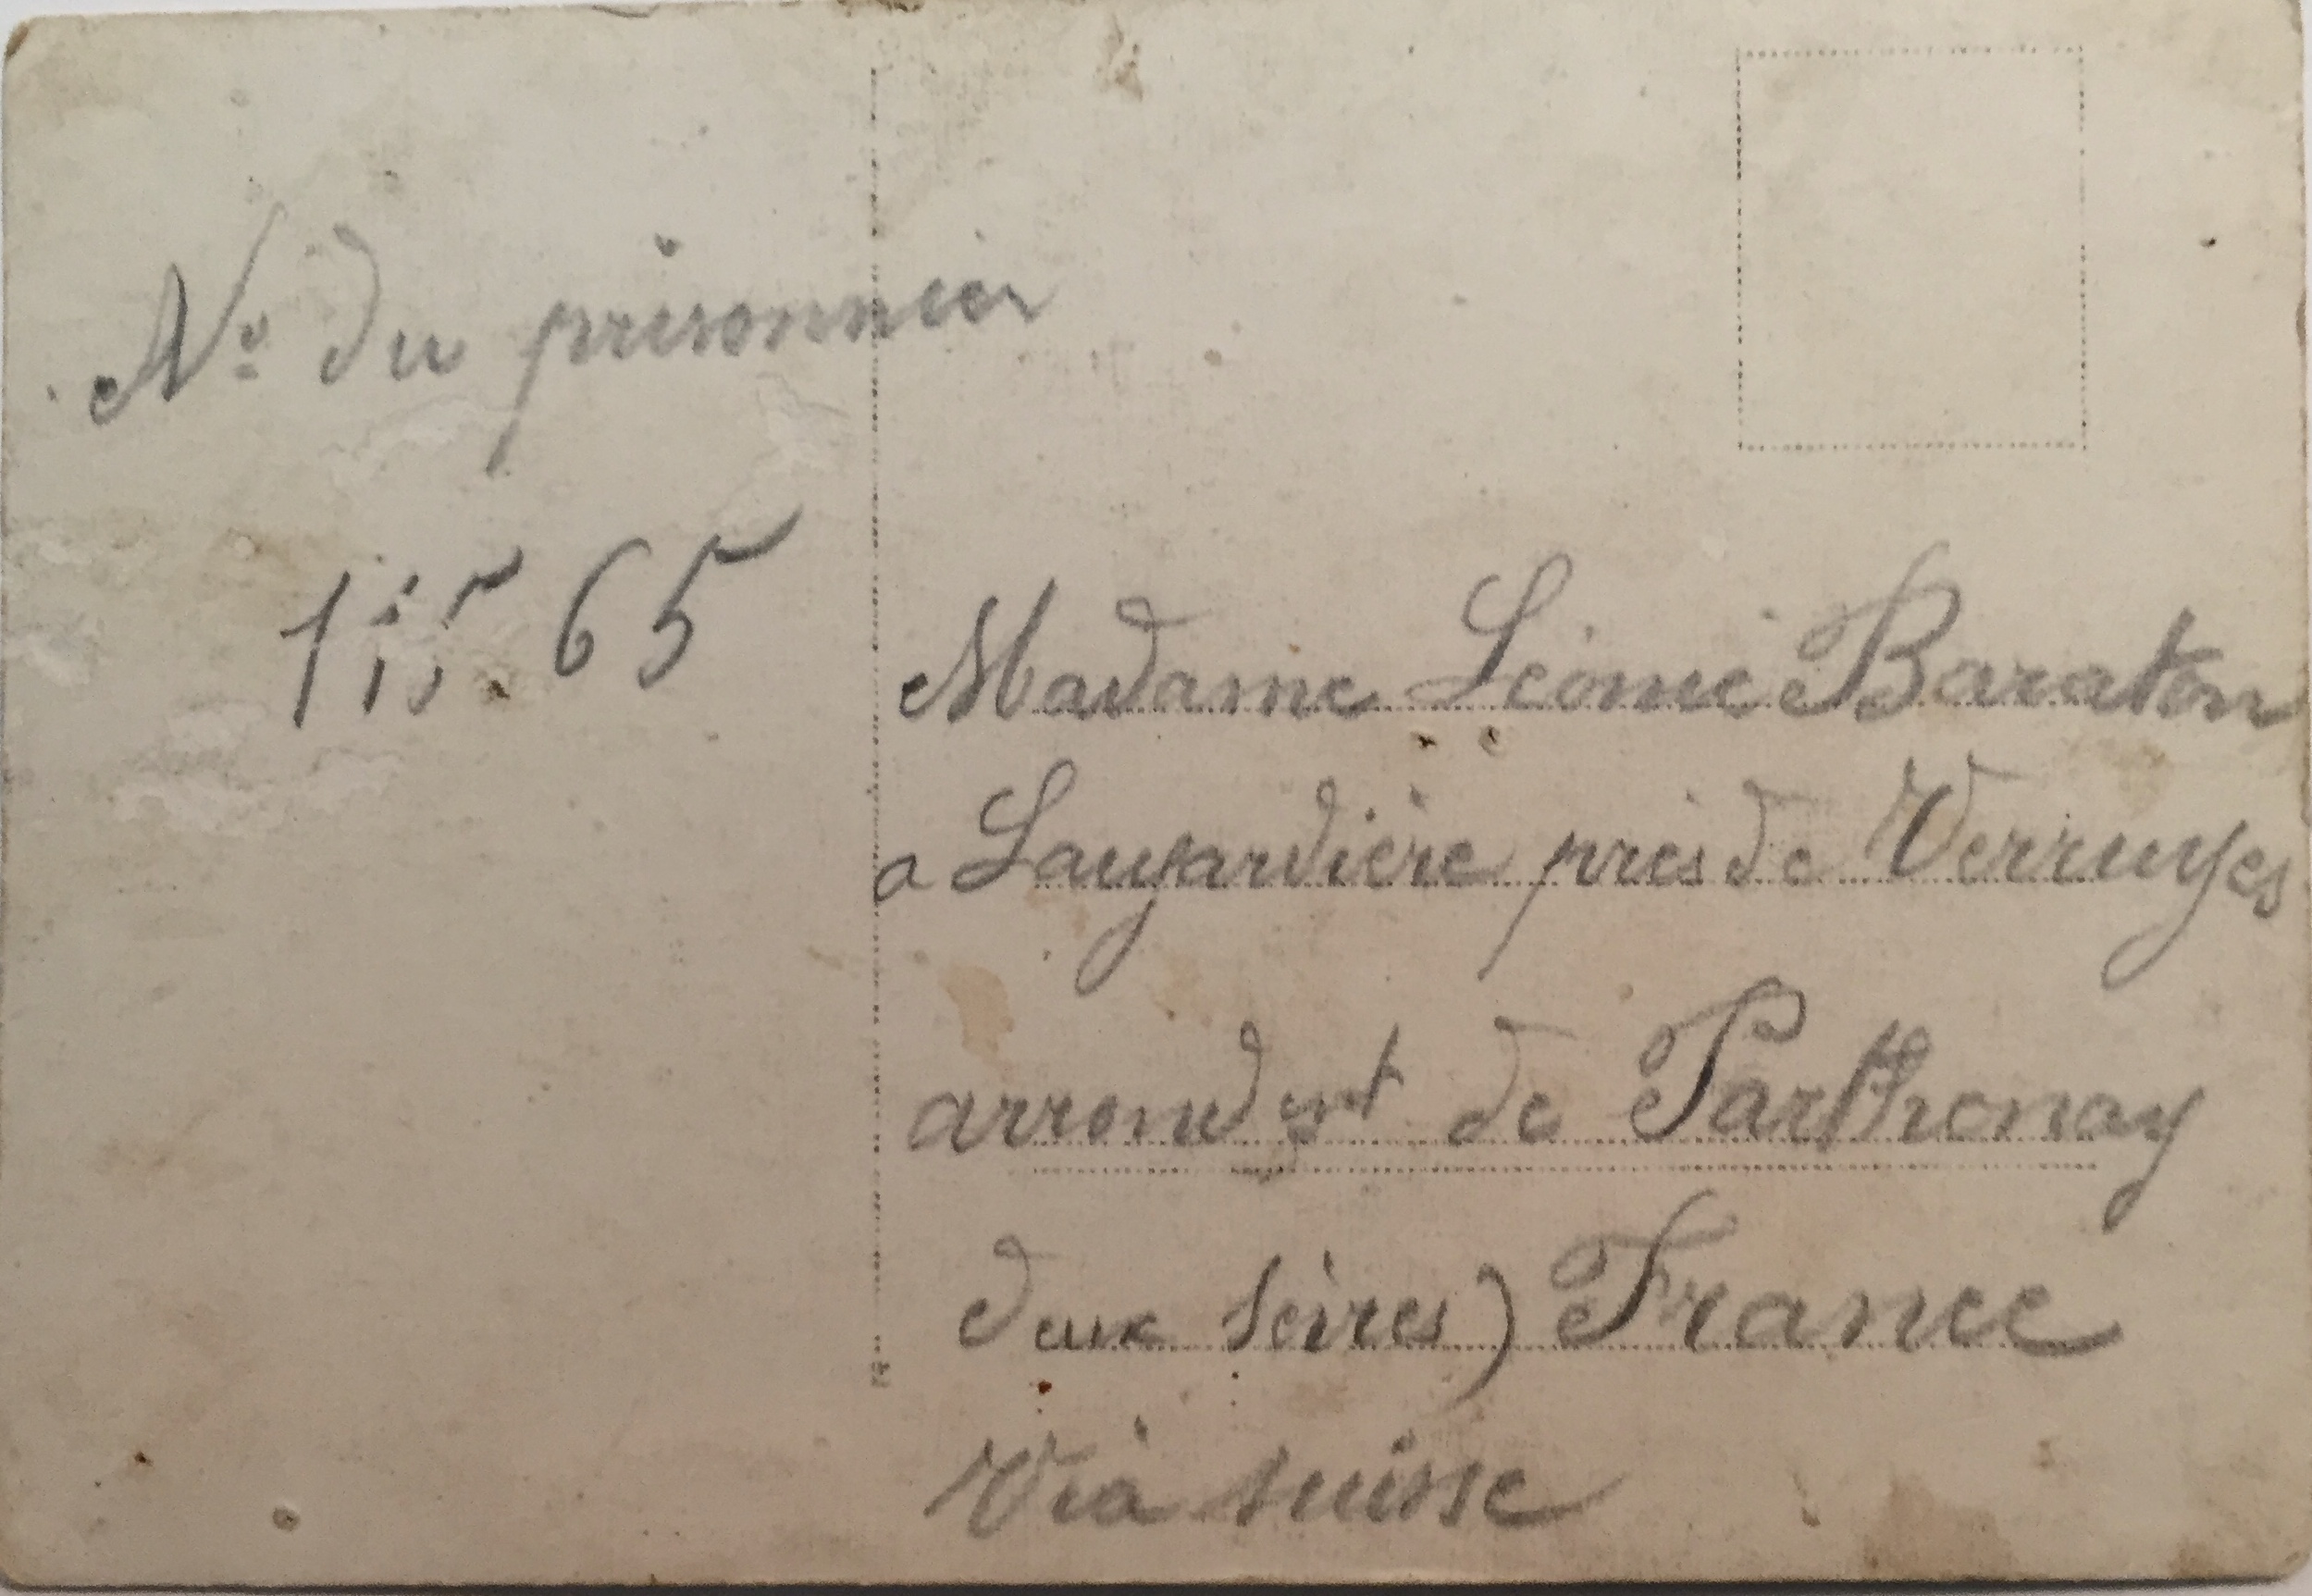 N° du prisonnier
11565
Madame Léonie Baraton
a Laujardière près de Verruyes
de Parthenay
deux sèvres) France
Via suisse